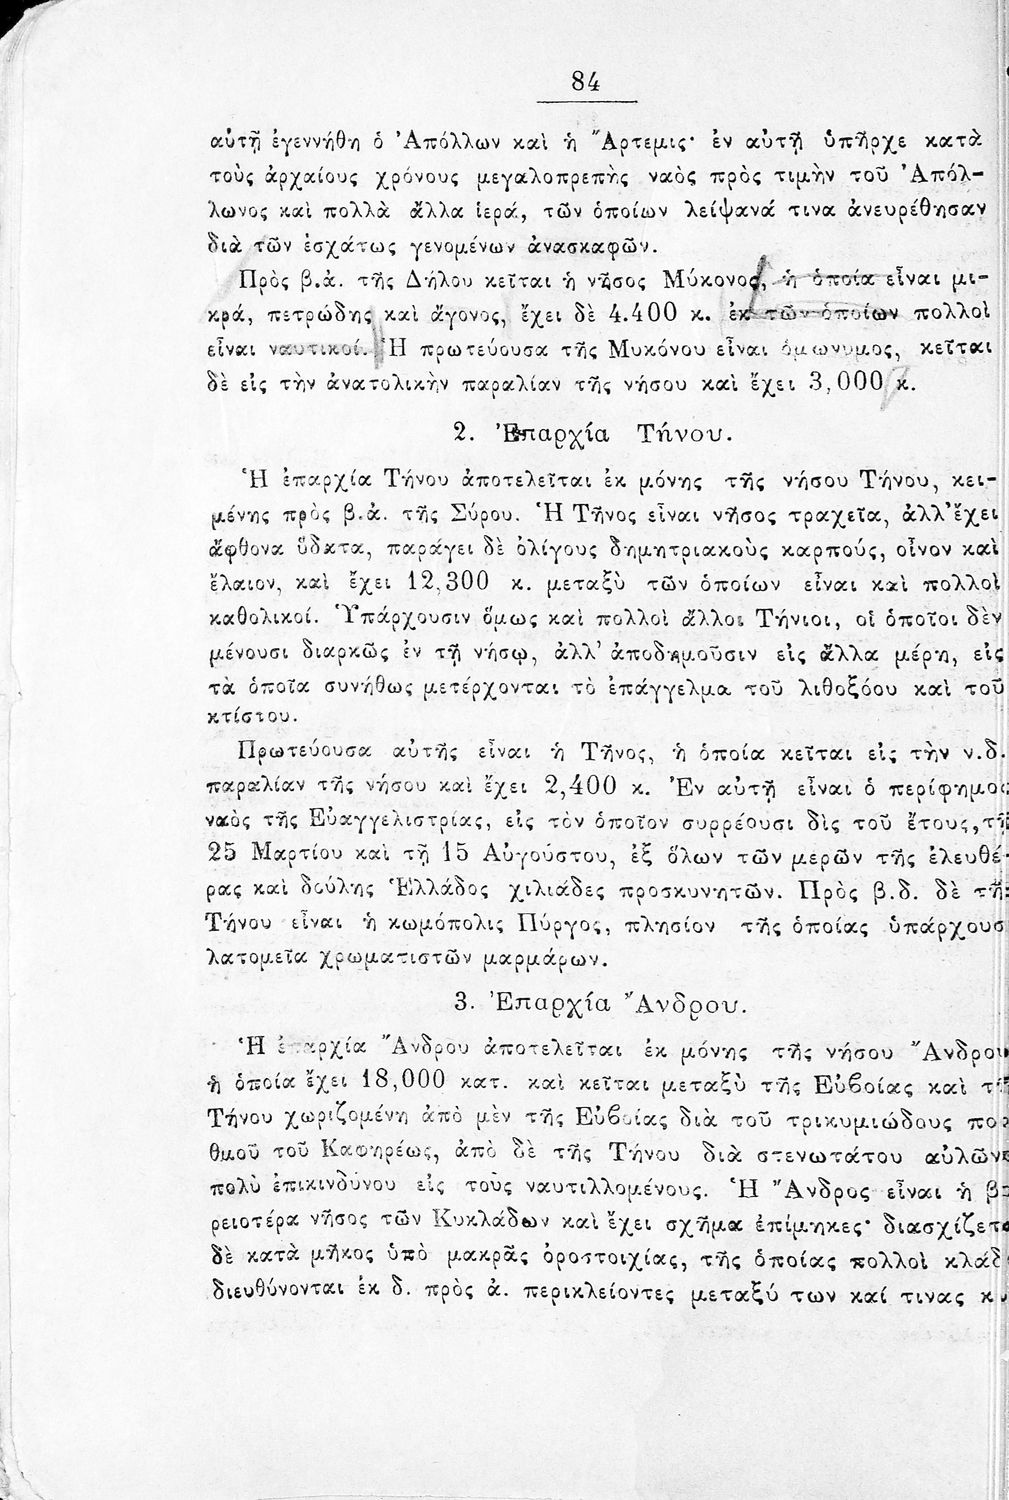 84
αὐτῇ ἐγεννήθη ὁ Ἀπόλλων καὶ ἡ Ἄρτεμις· ἐν αὐτῇ ὑπῆρχε κατὰ
τοὺς ἀρχαίους χρόνους μεγαλοπρεπὴς ναὸς πρὸς τιμὴν τοῦ Ἀπόλ-
λωνος καὶ πολλὰ ἄλλα ἱερά, τῶν ὁποίων λείψανά τινα ἀνευρέθησαν
διὰ τῶν ἐσχάτως γενομένων ἀνασκαφῶν.
Πρὸς β.ἀ. τῆς Δήλου κεῖται ἡ νῆσος Μύκονος, ἡ ὁποία εἶναι μι-
κρά, πετρώδης καὶ ἄγονος, ἔχει δὲ 4.400 κ. ἐκ τῶν ὁποίων πολλοὶ
εἶναι ναυτικοί. Ἡ πρωτεύουσα τῆς Μυκόνου εἶναι ὁμώνυμος, κεῖται
δὲ εἰς τὴν ἀνατολικὴν παραλίαν τῆς νήσου καὶ ἔχει 3,000 κ.
2. Ἐπαρχία Τήνου.
Ἡ ἐπαρχία Τήνου ἀποτελεῖται ἐκ μόνης τῆς νήσου Τήνου, κει-
μένης πρὸς β.ἀ. τῆς Σύρου. Ἡ Τῆνος εἶναι νῆσος τραχεῖα, ἀλλ' ἔχει
ἄφθονα ὕδατα, παράγει δὲ ὀλίγους δημητριακοὺς καρπούς, οἶνον καὶ
ἔλαιον, καὶ ἔχει 12,300 κ. μεταξὺ τῶν ὁποίων εἶναι καὶ πολλοὶ
καθολικοί. Ὑπάρχουσιν ὅμως καὶ πολλοὶ ἄλλοι Τήνιοι, οἱ ὁποῖοι δὲν
μένουσι διαρκῶς ἐν τῇ νήσῳ, ἀλλ' ἀποδημοῦσιν εἰς ἄλλα μέρη, εἰς
τὰ ὁποῖα συνήθως μετέρχονται τὸ ἐπάγγελμα τοῦ λιθοξόου καὶ τοῦ
κτίστου.
Πρωτεύουσα αὐτῆς εἶναι ἡ Τῆνος, ἡ ὁποία κεῖται εἰς τὴν ν.δ.
παραλίαν τῆς νήσου καὶ ἔχει 2,400 κ. Ἐν αὐτῇ εἶναι ὁ περίφημος
ναὸς τῆς Εὐαγγελιστρίας, εἰς τὸν ὁποῖον συρρέουσι δὶς τοῦ ἔτους, τῇ
25 Μαρτίου καὶ τῇ 15 Αὐγούστου, ἐξ ὅλων τῶν μερῶν τῆς ἐλευθέ-
ρας καὶ δούλης Ἑλλάδος χιλιάδες προσκυνητῶν. Πρὸς β.δ. δὲ τῆς
Τήνου εἶναι ἡ κωμόπολις Πύργος, πλησίον τῆς ὁποίας ὑπάρχουσ
λατομεῖα χρωματιστῶν μαρμάρων.
3. Ἐπαρχία Ἄνδρου.
Ἡ ἐπαρχία Ἄνδρου ἀποτελεῖται ἐκ μόνης τῆς νήσου Ἄνδρου
ἡ ὁποία ἔχει 18,000 κατ. καὶ κεῖται μεταξὺ τῆς Εὐβοίας καὶ τῆ
Τήνου χωριζομένη ἀπὸ μὲν τῆς Εὐβοίας διὰ τοῦ τρικυμιώδους πορ
θμοῦ τοῦ Καφηρέως, ἀπὸ δὲ τῆς Τήνου διὰ στενωτάτου αὐλῶν
πολὺ ἐπικινδύνου εἰς τοὺς ναυτιλλομένους. Ἡ Ἄνδρος εἶναι ἡ βο
ρειοτέρα νῆσος τῶν Κυκλάδων καὶ ἔχει σχῆμα ἐπίμηκες· διασχίζετα
δὲ κατὰ μῆκος ὑπὸ μακρᾶς ὀροστοιχίας, τῆς ὁποίας πολλοὶ κλάδ
διευθύνονται ἐκ δ. πρὸς ἀ. περικλείοντες μεταξύ των καί τινας